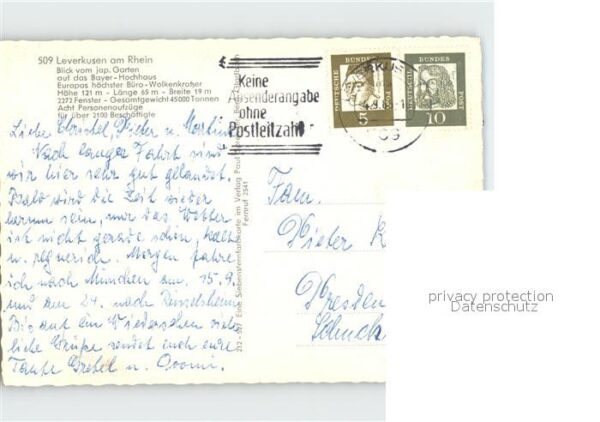 509 Leverkusen am Rhein
Blick vom jap. Garten
auf das Bayer-Hochhaus
Europas höchster Büro-Wolkenkratzer
Höhe 121 m - Länge 65 m - Breite 19 m
2272 Fenster - Gesamtgewicht 45000 Tonnen
Acht Personenaufzüge
für über 2100 Beschäftigte
Keine
Absenderangabe
ohne
Postleitzahl
DEUTSCHE BUNDES POST
5
DEUTSCHE BUNDES POST
10
Liebe Christel, Dieter u. Martina
Nach langer Fahrt sind
wir hier sehr gut gelandet.
Bald wird die Zeit wieder
herum sein, nur das Wetter
ist nicht gerade schön, kalt
u. regnerisch. Morgen fahre
ich nach München am 15.9.
und am 24. nach Rüsselsheim
Bis auf ein Wiedersehen viele
liebe Grüße sendet euch eure
Tante Gretel u.
Fam.
Dieter K
Dresden
Eine Siebensternfarbkarte im Verlag Paul
Fernruf 2541
privacy protection
Datenschutz